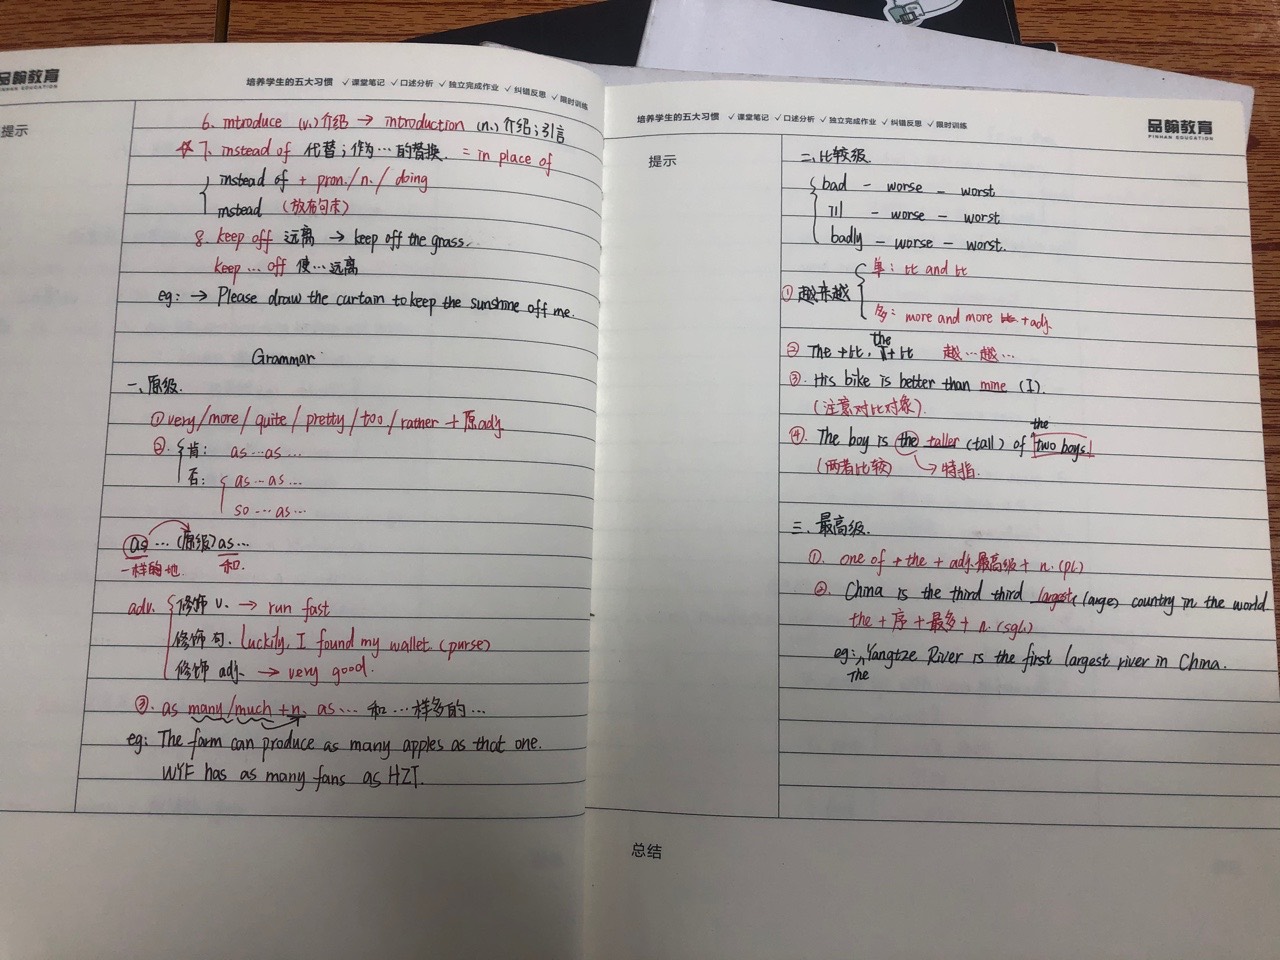 品翰教育
PINHAN EDUCATION
培养学生的五大习惯 ✓课堂笔记 ✓口述分析 ✓独立完成作业 ✓纠错反思 ✓限时训练
提示
6. introduce (v.) 介绍 → introduction (n.) 介绍;引言
☆7. instead of 代替;作为…的替换. = in place of
instead of + pron./n./doing
instead (放在句末)
8. keep off 远离 → keep off the grass.
keep … off 使…远离
eg: → Please draw the curtain to keep the sunshine off me.
Grammar
一、原级.
① very/more/quite/pretty/too/rather + 原adj.
②. 肯: as…as…
否: as…as…
so…as…
as…(原级)as…
一样的地. 和.
adv. 修饰 v. → run fast
修饰句. Luckily, I found my wallet. (purse)
修饰 adj. → very good.
③. as many/much + n. as… 和…一样多的…
eg: The farm can produce as many apples as that one.
WYF has as many fans as HZT.
培养学生的五大习惯 ✓课堂笔记 ✓口述分析 ✓独立完成作业 ✓纠错反思 ✓限时训练
品翰教育
PINHAN EDUCATION
提示
二、比较级
bad - worse - worst
ill - worse - worst
badly - worse - worst.
① 越来越 单: 比 and 比
多: more and more + adj.
② The + 比, the + 比 越…越…
③. His bike is better than mine (I).
(注意对比对象).
④. The boy is the taller (tall) of the two boys
(两者比较) → 特指.
三、最高级.
①. one of + the + adj.最高级 + n. (pl.)
②. China is the third third largest (large) country in the world.
the + 序 + 最多 + n. (sgl.)
eg: The Yangtze River is the first largest river in China.
总结